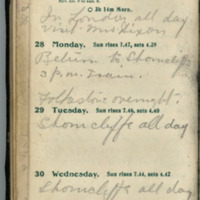 3h 14m Morn.
In London all day
visit Mrs Dixon
28 Monday. Sun rises 7.47, sets 4.39
Return to Shorncliffe
3 p.m. train.
Folkestone overnight.
29 Tuesday. Sun rises 7.46, sets 4.40
Shorncliffe all day
30 Wednesday. Sun rises 7.44, sets 4.42
Shorncliffe all day